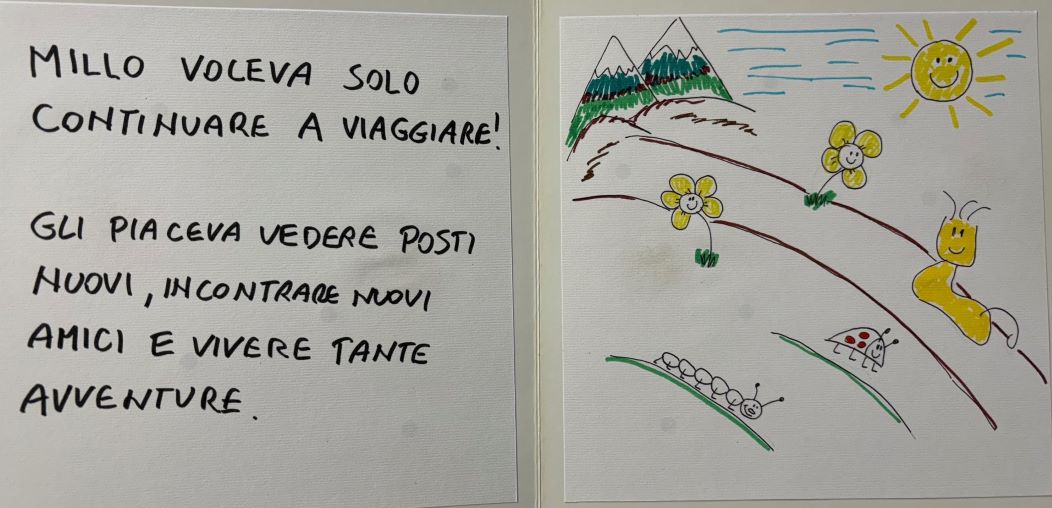 MILLO VOLEVA SOLO
CONTINUARE A VIAGGIARE!
GLI PIACEVA VEDERE POSTI
NUOVI, INCONTRARE NUOVI
AMICI E VIVERE TANTE
AVVENTURE.